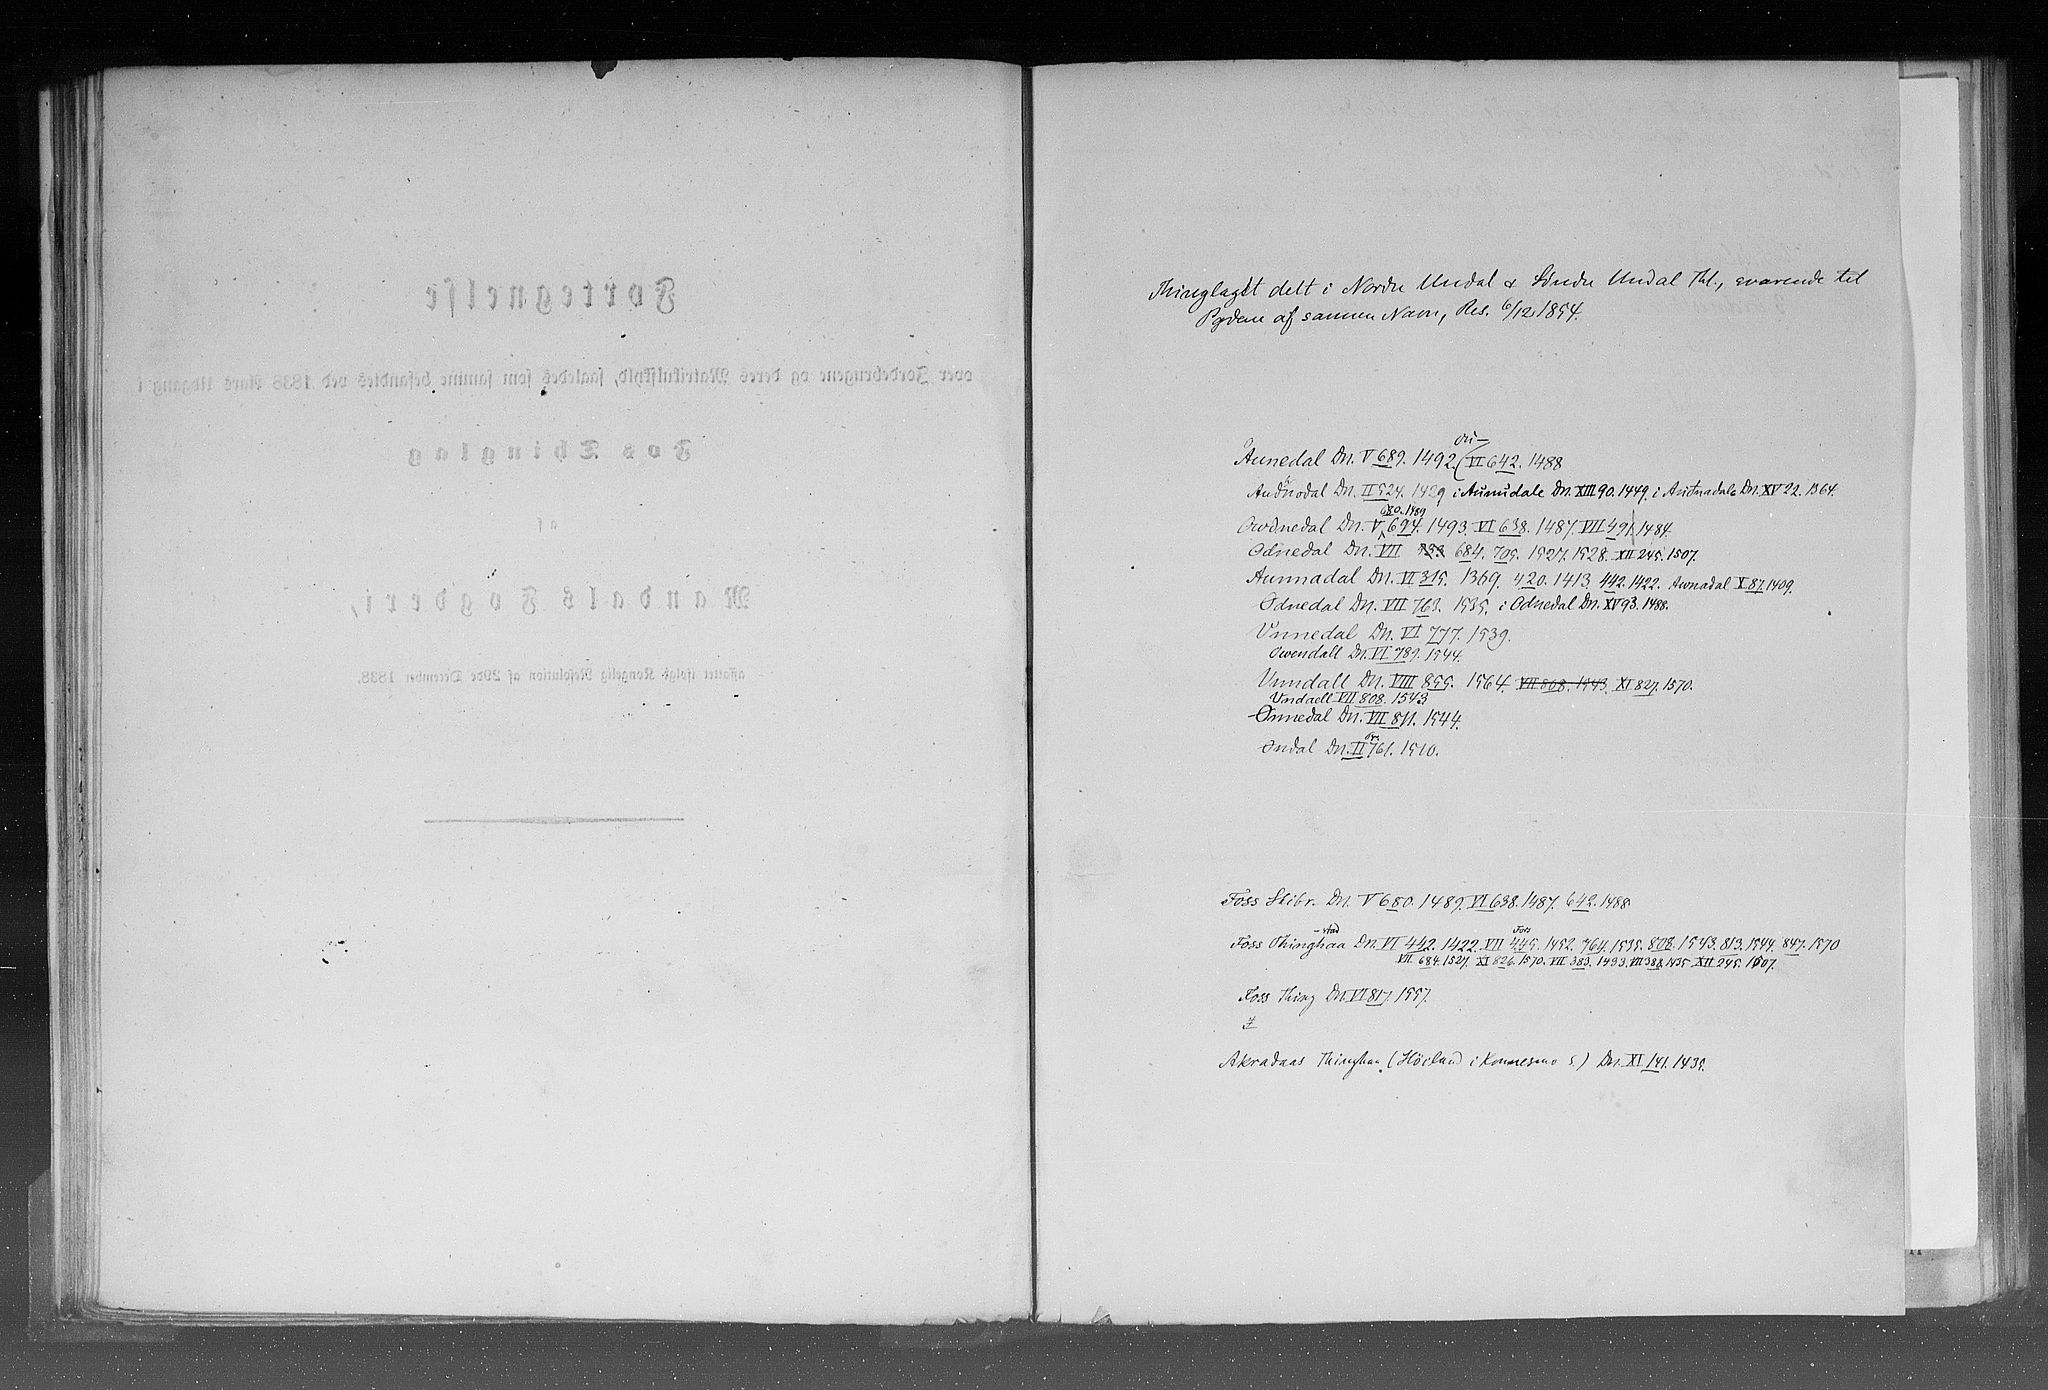 Fortegnelse
over Jordebrugene og deres Matrikulskyld, saaledes som samme befandtes ved 1838 Aars Udgang i
Fos Thinglag
af
Mandals Fogderi,
affattet ifølge Kongelig Resolution af 29de December 1838.
Thinglaget delt i Nordre Undal & Søndre Undal Thl., svarende til
Bygdene af samme Navn, Res. 6/12 1854.
Aunedal Dn. V 689. 1492. (VI 642. 1488
Audnodal Dn. II 524. 1429 i Aunudale Dn. XIII 90. 1449. i Audnadale Dn. XV 22. 1364.
680. 1489
Owdnedal Dn. V 694. 1493. VI 638. 1487. VII 491. 1484.
Odnedal Dn. VII 684. 705. 1527. 1528. XII 245. 1507.
Aunnadal Dn. VI 315. 1369. 420. 1413. 442. 1422. Awnadal X 87. 1409.
Odnedal Dn. VII 763. 1535. i Odnedal Dn. XV 93. 1488.
Vnnedal Dn. VI 777. 1539.
Owendall Dn. VI 789. 1544.
Vnndall Dn. VIII 855. 1564. VII 808. 1543. XI 827. 1570.
Vndaell VII 808. 1543
Ønnedal Dn. VII 811. 1544.
Ondal Dn. II 761. 1510.
Foss Skibr. Dn. V 680. 1489. VI 638. 1487. 642. 1488.
-stad Foss
Foss Thinghaa Dn. VI 442. 1422. VII 445. 1452. 764. 1535. 808. 1543. 813. 1544. 847. 1570
VII 684. 1527. XI 826. 1570. VII 383. 1433. VII 388. 1435. XII 245. 1507.
Foss Thing Dn. VI 817. 1557.
Akradaas Thinghaa (Høiland i Konnesmo S.) Dn. XI 141. 1435.